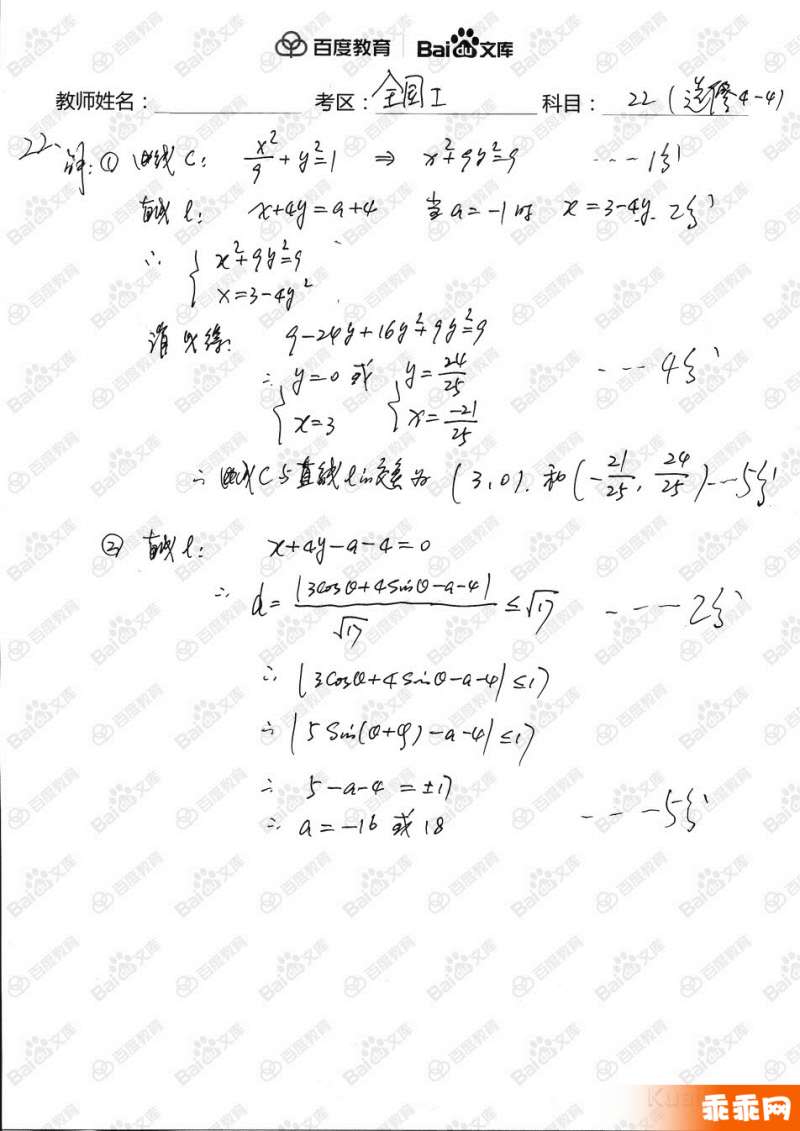 百度教育 Bai du 文库
教师姓名： 考区：全国I 科目：22（选修4-4)
22、解：① 曲线C： x²/9 + y²=1 ⇒ x²+9y²=9 ---1分
直线l： x+4y=a+4 当a=-1时 x=3-4y. 2分
∴ { x²+9y²=9
x=3-4y²
消x得： 9-24y+16y²+9y²=9
∴ { y=0 或 { y=24/25 ---4分
x=3 x=-21/25
∴ 曲线C与直线l的交点为 (3,0). 和(-21/25, 24/25)---5分
② 直线l： x+4y-a-4=0
∴ d=|3cosθ+4sinθ-a-4|/√17 ≤√17 ----2分
∴ |3cosθ+4sinθ-a-4|≤17
∴ |5sin(θ+φ)-a-4|≤17
∴ 5-a-4=±17
∴ a=-16 或 18 ---5分
乖乖网